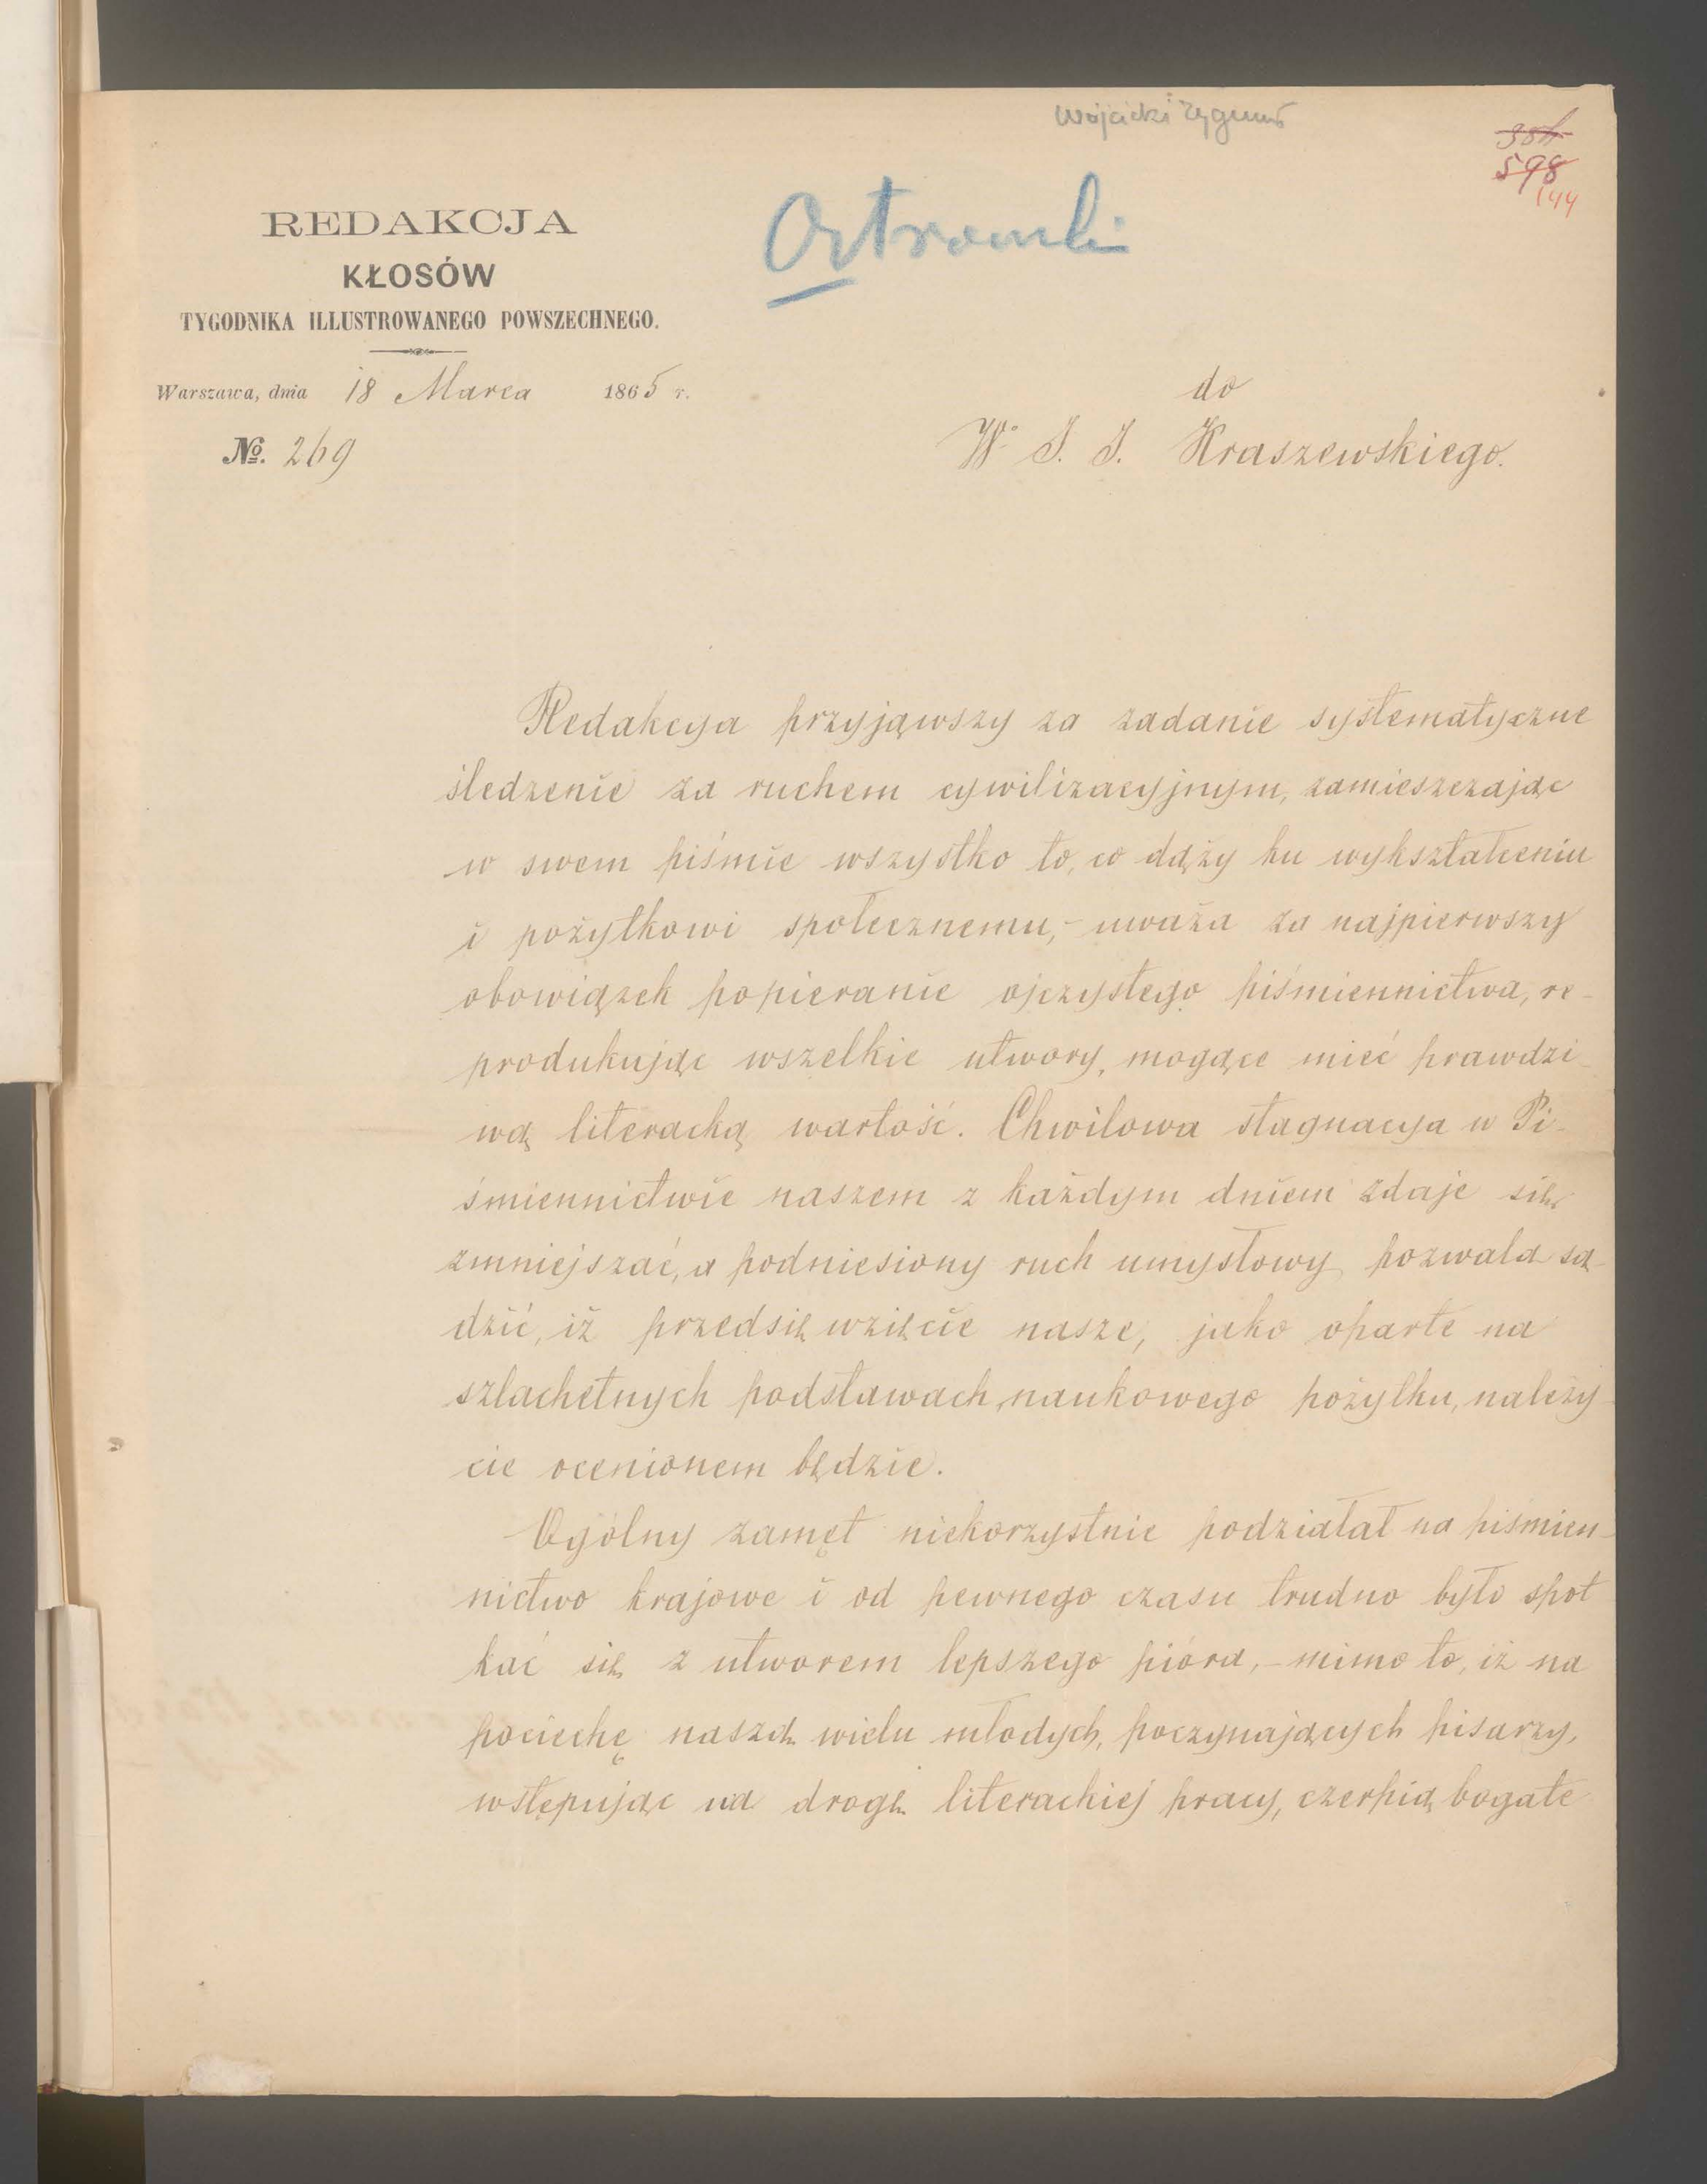 Wójcicki Zygmunt
598
144
Ostrowski
REDAKCJA
KŁOSÓW
TYGODNIKA ILLUSTROWANEGO POWSZECHNEGO.
Warszawa, dnia 18 Marca 1865 r.
№. 269
do
W° J. I. Kraszewskiego.
Redakcya przyjąwszy za zadanie systematyczne
śledzenie za ruchem cywilizacyjnym, zamieszczając
w swem piśmie wszystko to, co dąży ku wykształceniu
i pożytkowi społecznemu,- uważa za najpierwszy
obowiązek popieranie ojczystego piśmiennictwa, re-
produkując wszelkie utwory, mogące mieć prawdzi-
wą literacką wartość. Chwilowa stagnacya w Pi-
śmiennictwie naszem z każdym dniem zdaje się
zmniejszać, a podniesiony ruch umysłowy pozwala są-
dzić, iż przedsięwzięcie nasze, jako oparte na
szlachetnych podstawach, naukowego pożytku, należy-
cie ocenionem będzie.
Ogólny zamęt niekorzystnie podziałał na piśmien-
nictwo krajowe i od pewnego czasu trudno było spot
kać się z utworem lepszego pióra,- mimo to, iż na
pociechę naszą wielu młodych, poczynających pisarzy,
wstępując na drogę literackiej pracy, czerpią bogate